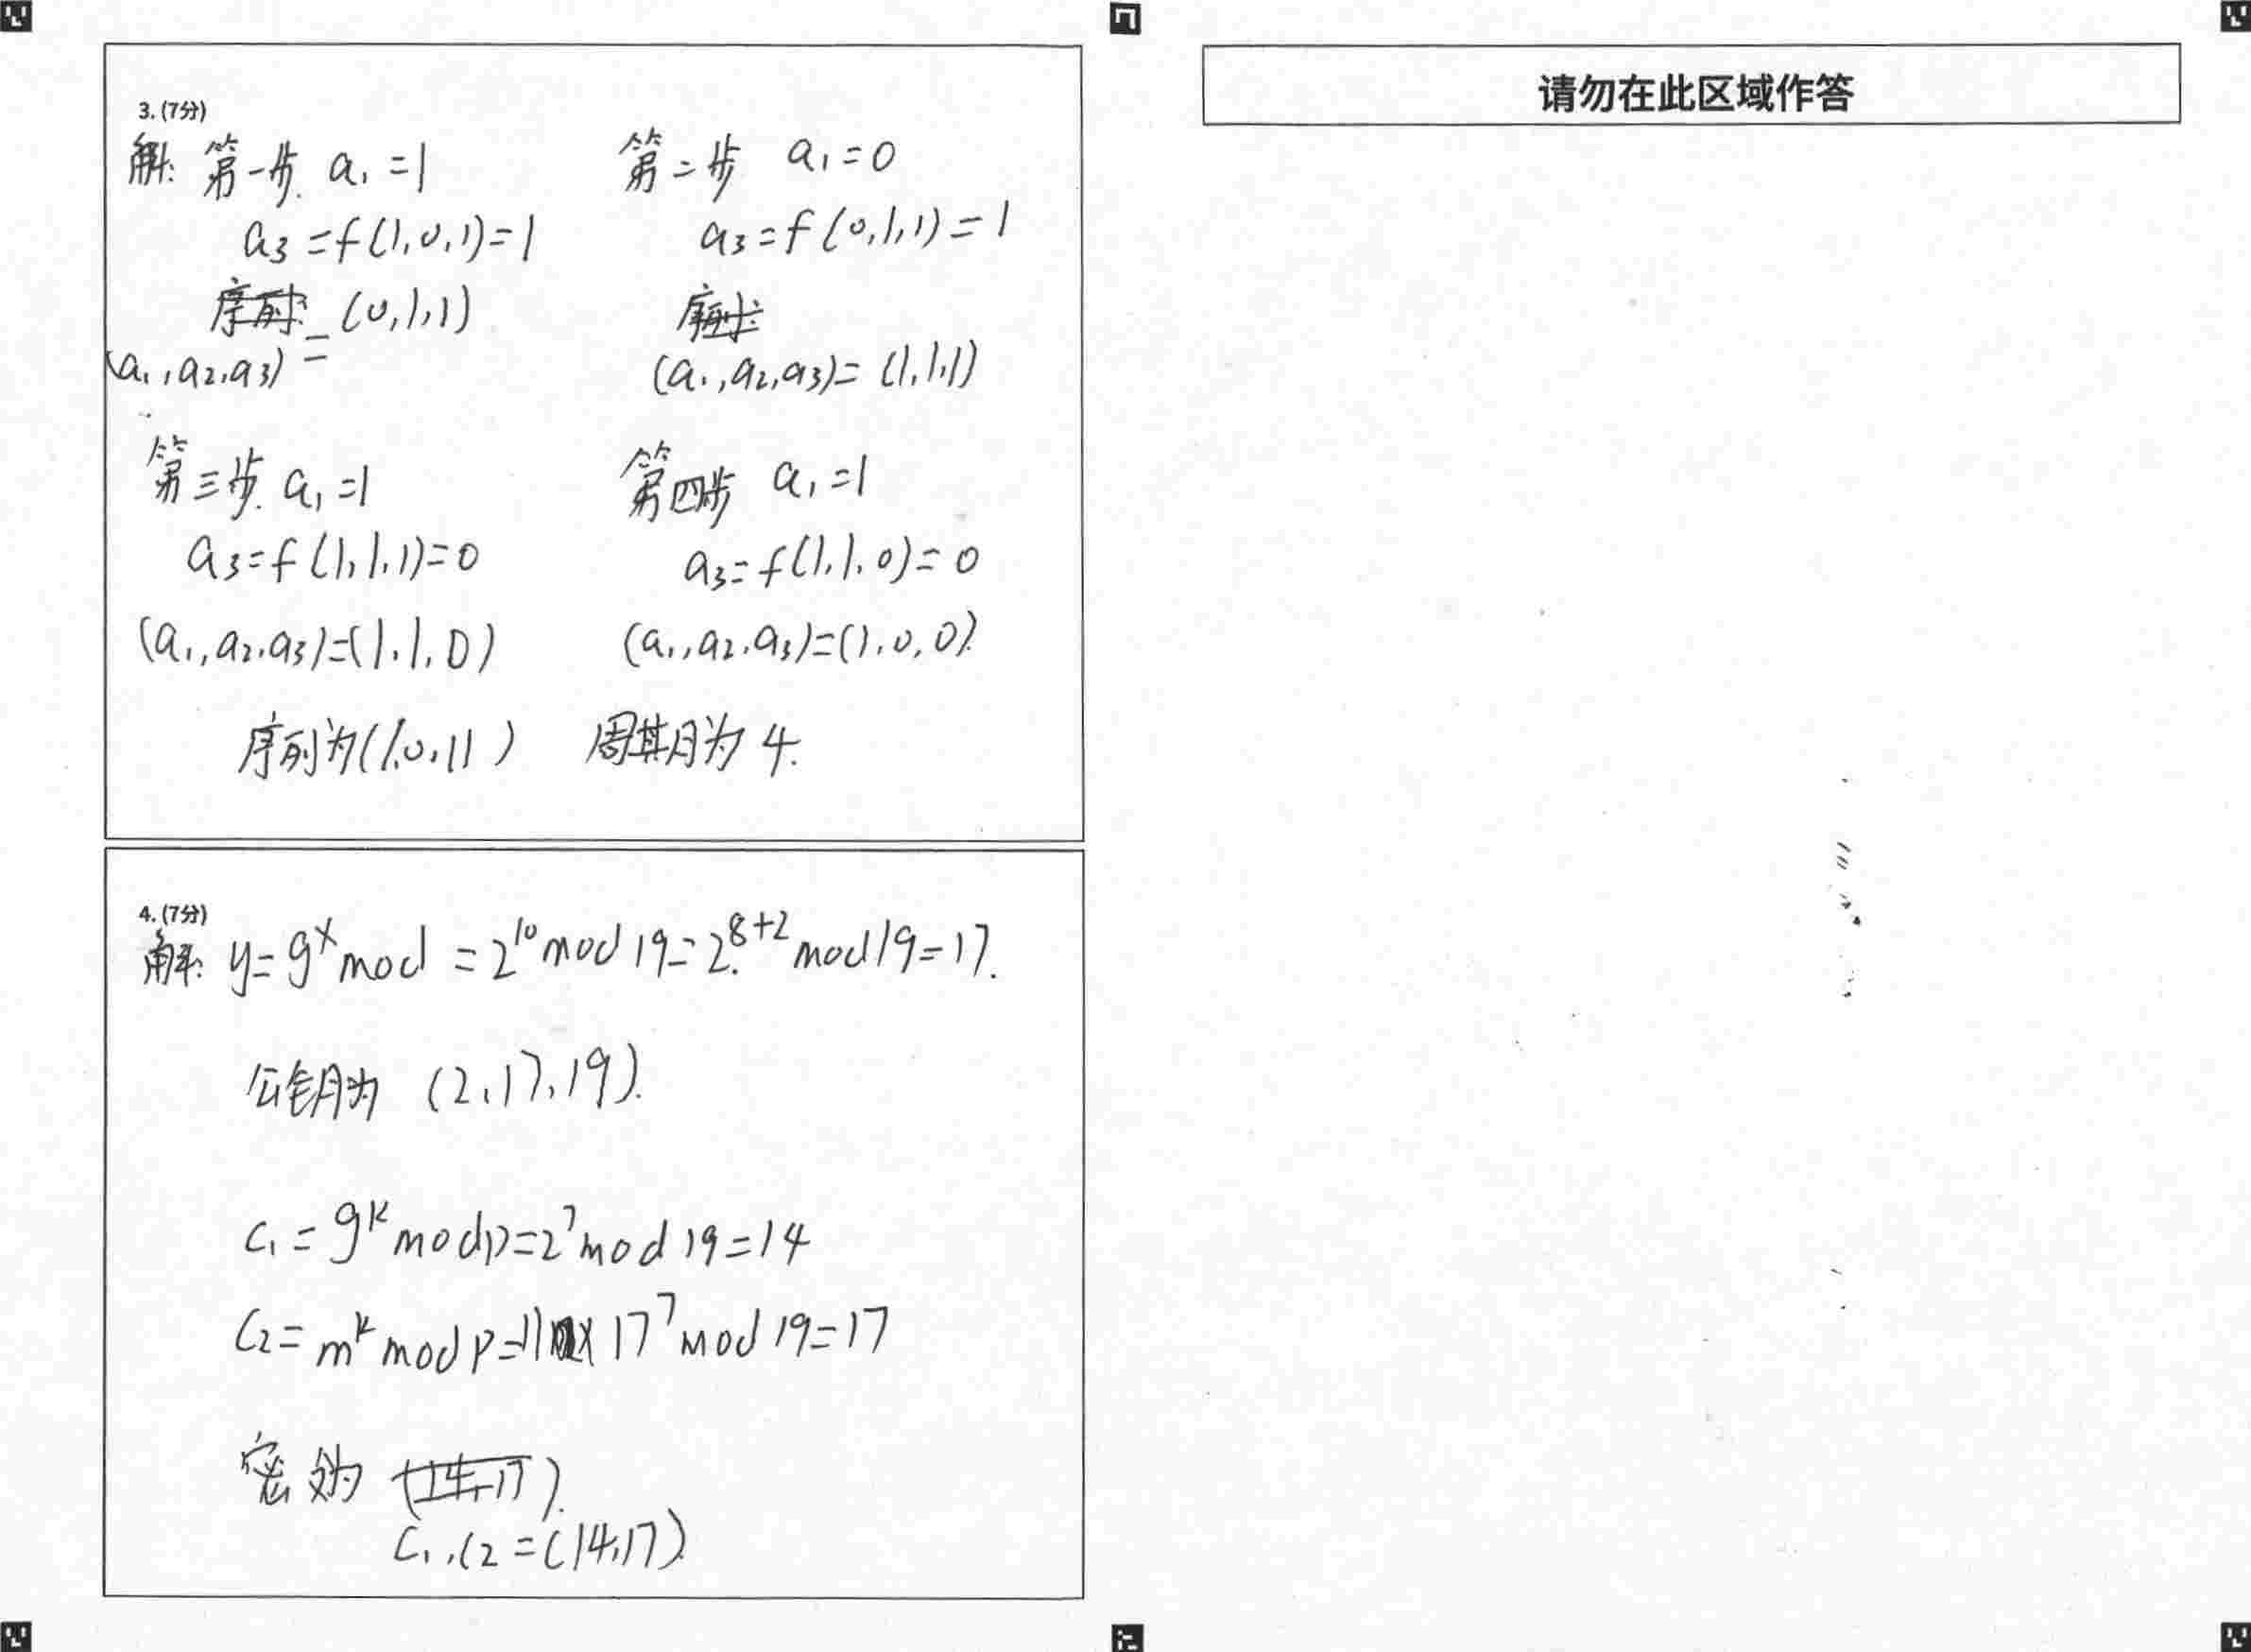 3. (7分)
解: 第一步. a₁=1
a₃=f(1,0,1)=1
(0,1,1)
(a₁,a₂,a₃)=
第二步 a₁=0
a₃=f(0,1,1)=1
(a₁,a₂,a₃)=(1,1,1)
第三步. a₁=1
a₃=f(1,1,1)=0
(a₁,a₂,a₃)=(1,1,0)
第四步 a₁=1
a₃=f(1,1,0)=0
(a₁,a₂,a₃)=(1,0,0).
序列为(1,0,11) 周期为4.
4. (7分)
解: y=gˣmod =2¹⁰mod 19=2⁸⁺² mod 19=17.
公钥为 (2,17,19).
c₁=gᵏmodp=2⁷mod 19=14
c₂=mᵏmodp=11×17⁷mod 19=17
密文为 (14,17).
c₁,c₂=(14,17)
请勿在此区域作答